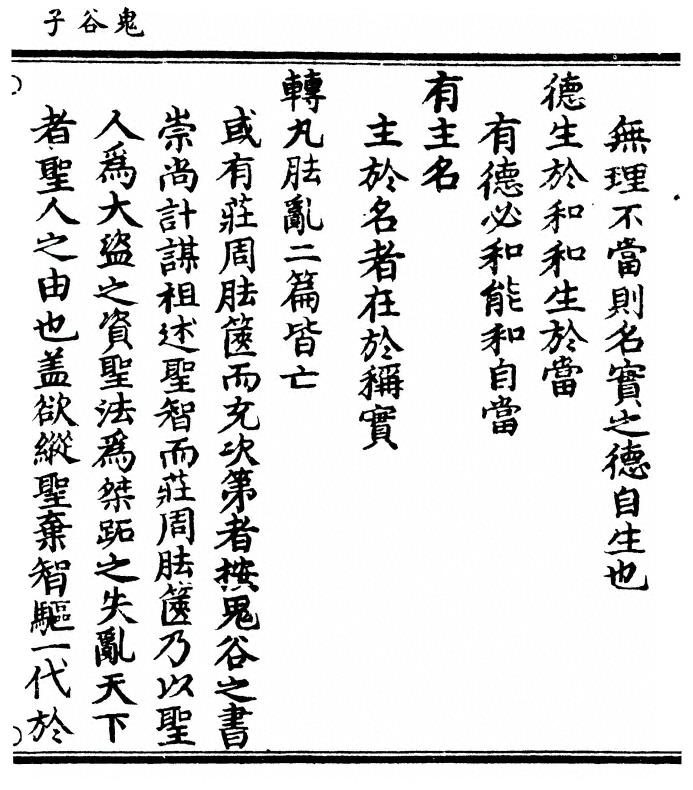 鬼谷子
無理不當則名實之德自生也
德生於和和生於當
有德必和能和自當
有主名
主於名者在於稱實
轉丸胠亂二篇皆亡
或有莊周胠篋而充次第者按鬼谷之書
崇尚計謀祖述聖智而莊周胠篋乃以聖
人爲大盜之資聖法爲桀跖之失亂天下
者聖人之由也盖欲縱聖棄智驅一代於